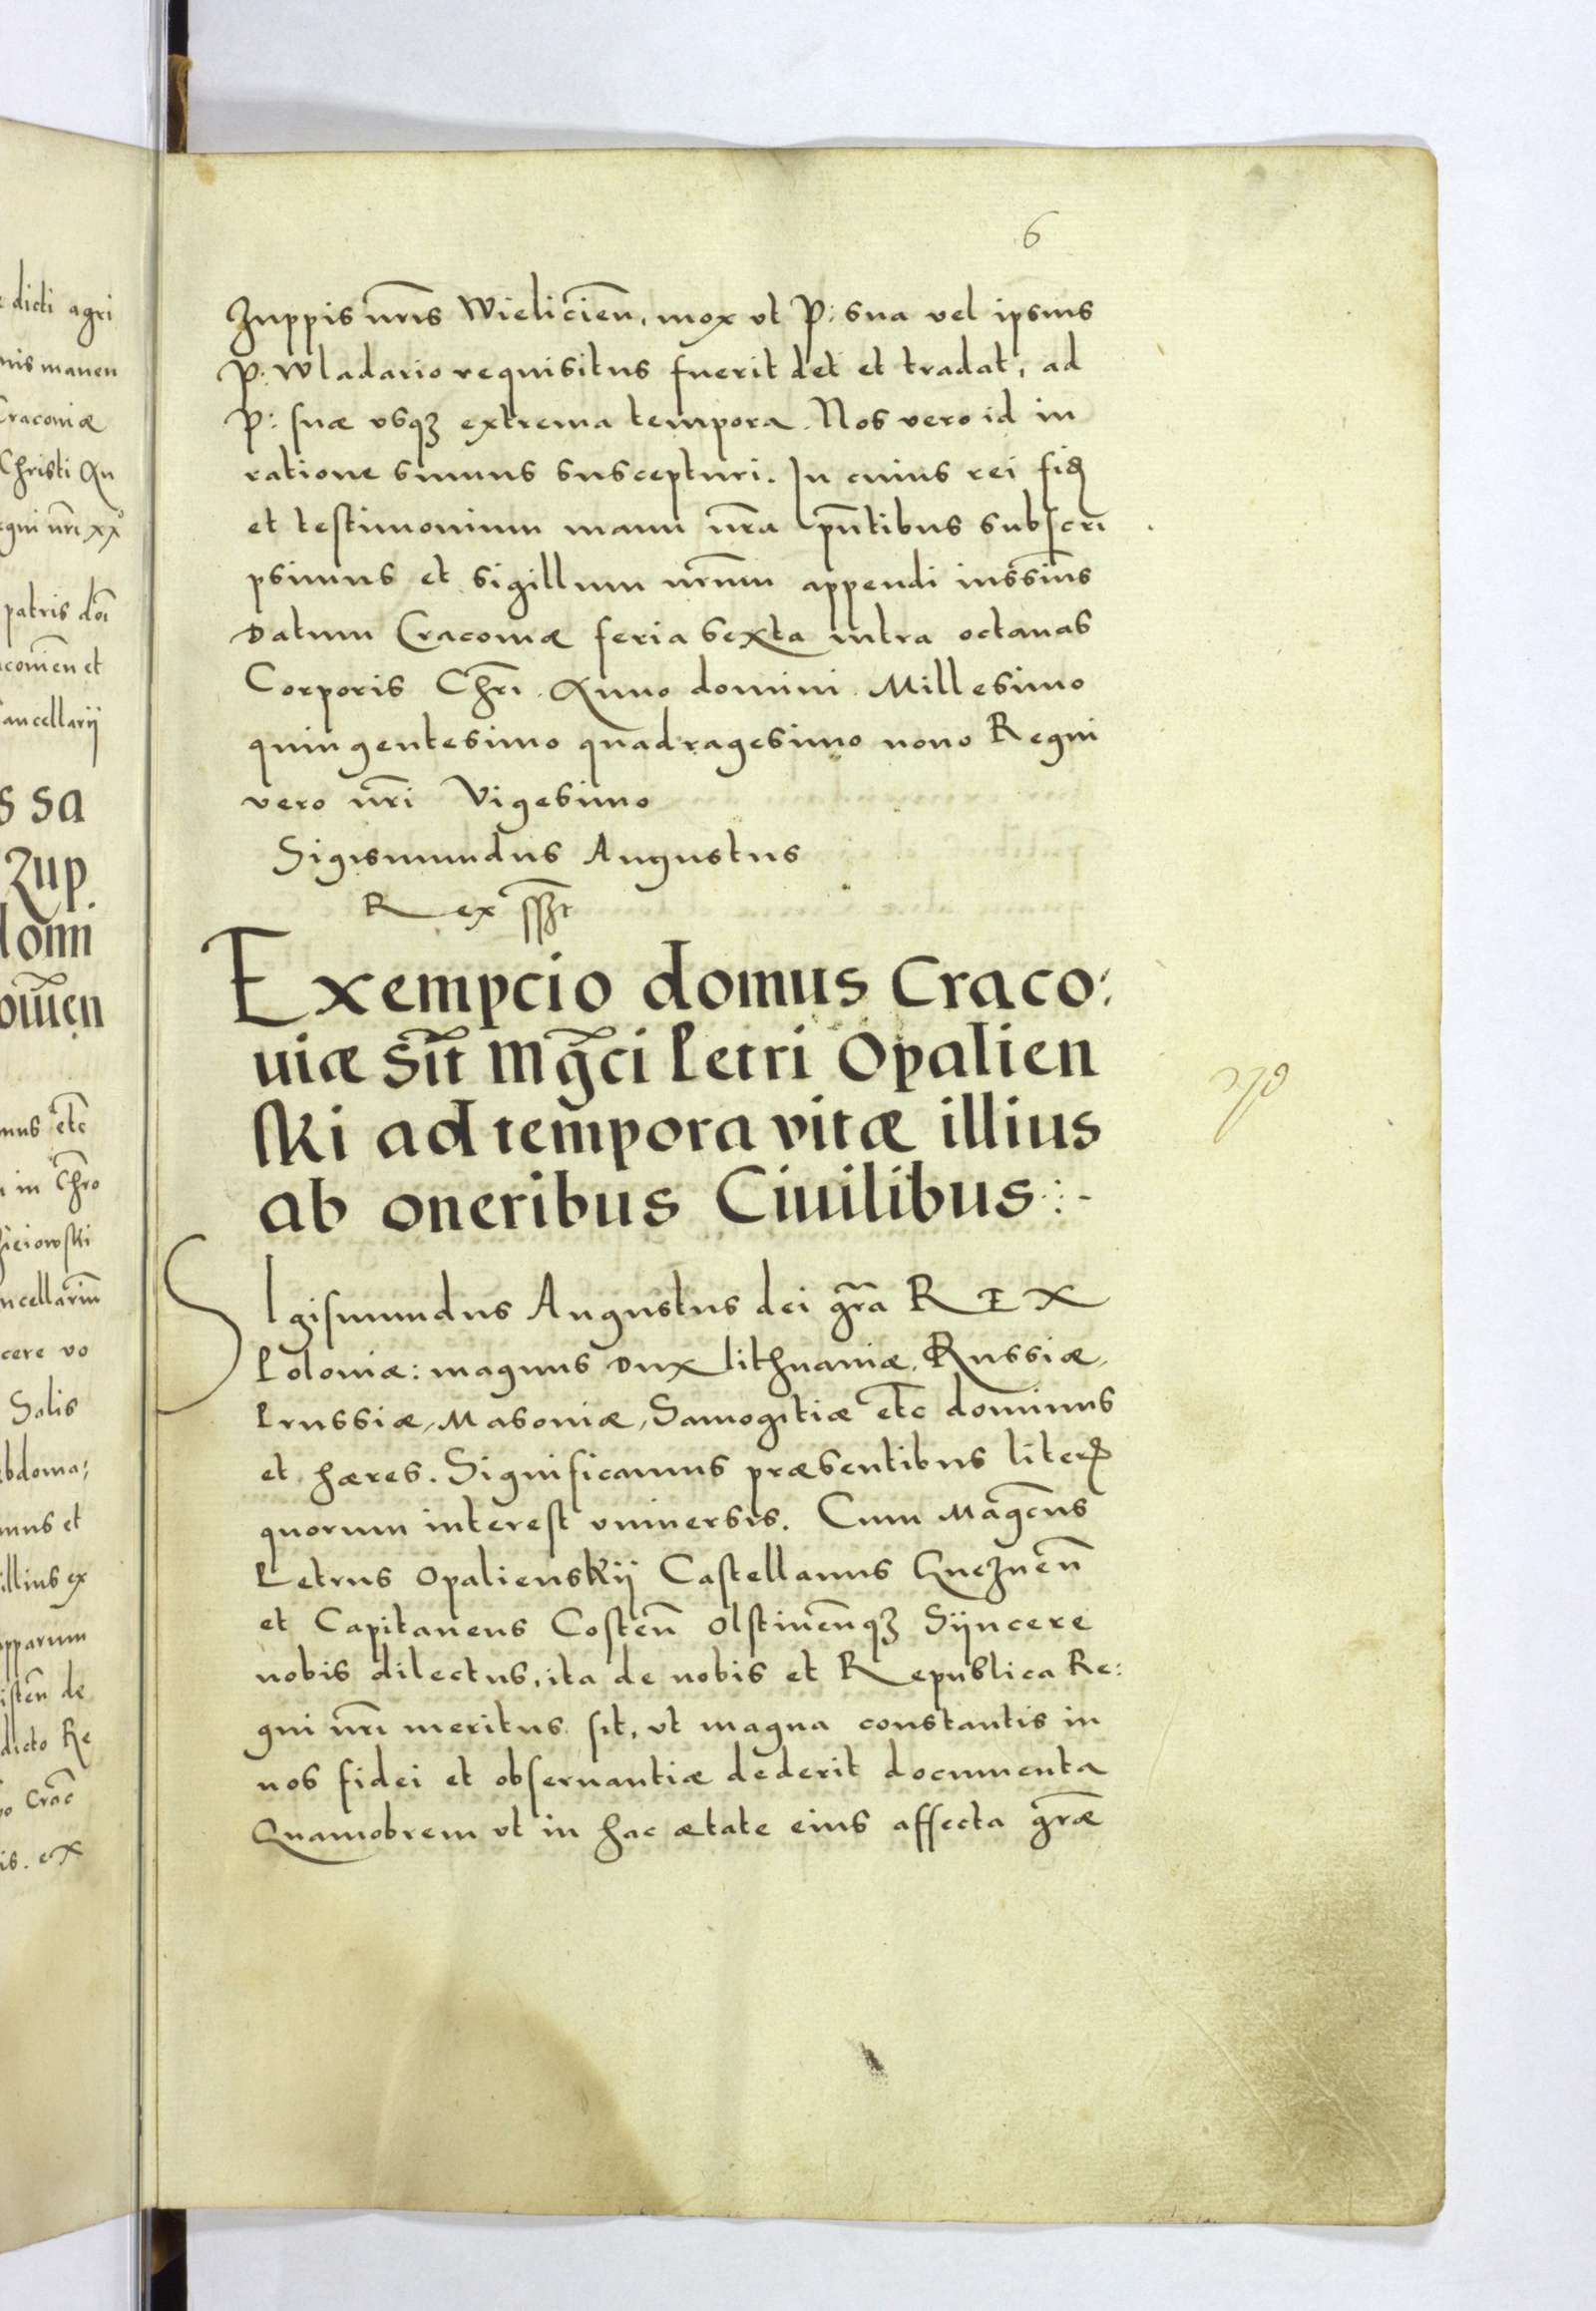 6
Zuppis nr̃is Wielicień, mox vt P: sua vel ipsius
P: Wladario requisitus fuerit det et tradat, ad
P: suæ vsqꝫ extrema tempora. Nos vero id in
ratione sumus suscepturi. In cuius rei fid̨
et testimonium manu nr̃a pñtibus subscri
psimus et sigillum nr̃um appendi iussim̃s
Datum Cracouiæ feria sexta intra octauas
Corporis Chr̃i. Anno domini Millesimo
quingentesimo quadragesimo nono Regni
vero nr̃i Vigesimo
Sigismundus Augustus
Rex
Exempcio domus Craco:
uiæ Mg̃ci Petri Opalien
ski ad tempora vitæ illius
ab oneribus Ciuilibus :-
SIgismundus Augustus dei gr̃a REX
Poloniæ: magnus Dux lithuaniæ, Russiæ,
Prussiæ, Masouiæ, Samogitiæ etc̃ dominus
et hæres. Significamus præsentibus literꝭ
quorum interest vniuersis. Cum Mag̃cus
Petrus Opalienskij Castellanus Gneznen̄
et Capitaneus Costen̄ Olstinen̄qꝫ Sÿncere
nobis dilectus, ita de nobis et Republica Re:
gni nr̃i meritus sit, vt magna constantis in
nos fidei et obseruantiæ dederit documenta
Quamobrem vt in hac ætate eius affecta gr̃æ
dicti agri
nis manen
Cracouiæ
Christi An
egni nr̃i xxº
patris
ancellarij
s sa
Zup
mus etc̃
in Chr̃o
cere vo
Salis
ebdoma:
mus et
illius ex
pparum
dicto Re
Crac̃
is. ex